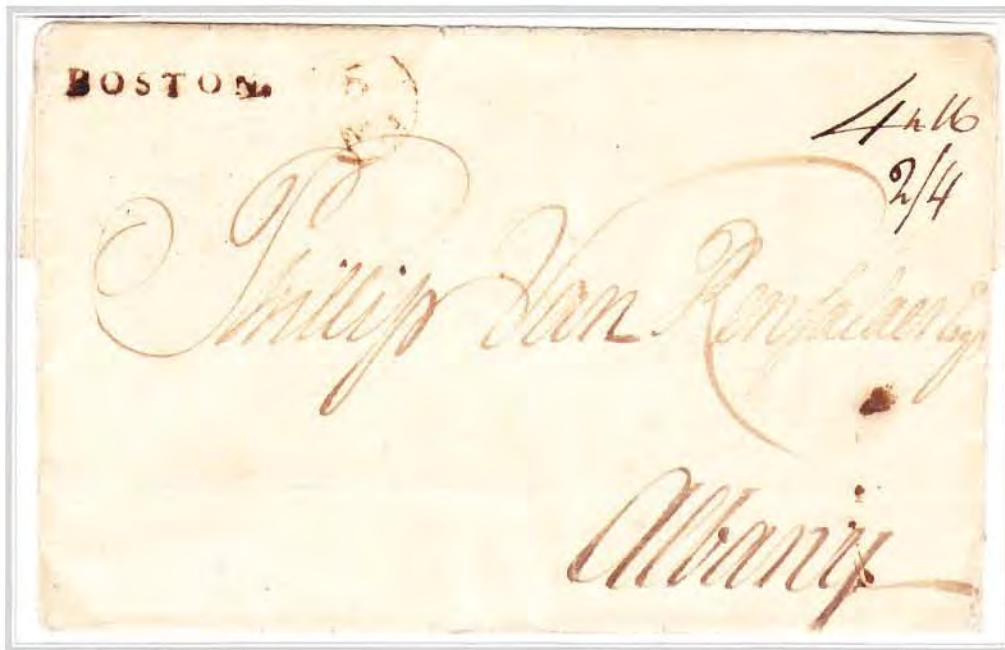 BOSTON.
5
4
2/4
Phillip Van Renselaer Esqr
Albany.